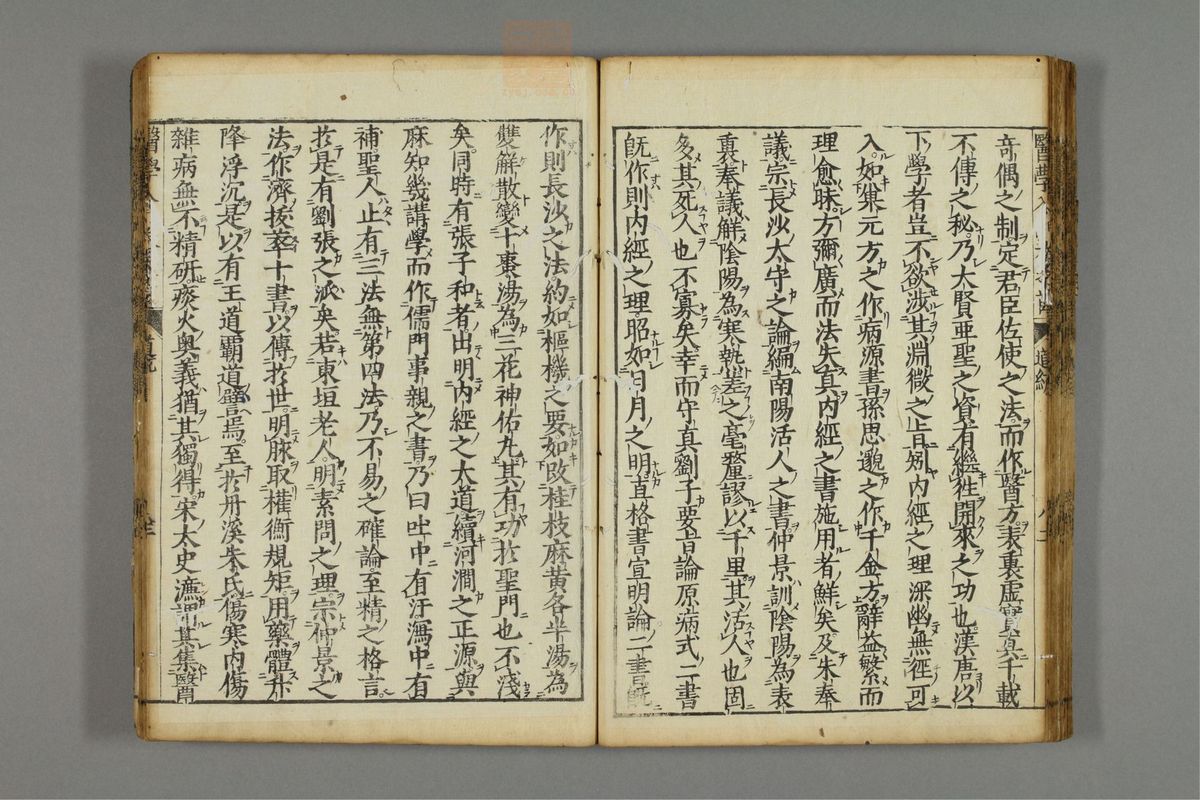 奇偶之制定君臣佐使之法而作醫方表裏虛實真千載
不傳之秘乃大賢亜聖之資有繼徃開來之功也漢唐以
下學者豈不欲涉其淵微之旨矧内經之理深幽無徑可
入如巣元方之作病源書孫思邈之作千金方辭益繁而
理愈昧方彌廣而法失真内經之書施用者鮮矣及朱奉
議宗長沙太守之論編南陽活人之書仲景訓陰陽為表
裏奉議解陰陽為寒熱差之毫釐謬以千里其活人也固
多其死人也不寡矣幸而守真劉子要旨論原病式二書
旣作則内經之理昭如日月之明直格書宣明論二書旣
作則長沙之法約如樞機之要如改桂枝麻黄各半湯為
雙解散變十棗湯為三花神佑丸其有功於聖門也不淺
矣同時有張子和者出明内經之太道續河澗之正源與
麻知幾講學而作儒門事親之書乃曰吐中有汙瀉中有
補聖人止有三法無第四法乃不易之確論至精之格言
於是有劉張之派矣若東垣老人明素問之理宗仲景之
法作濟拔萃十書以傳於世明脉取權衡規矩用藥體升
降浮沉是以有王道覇道譬焉至於丹溪朱氏傷寒内傷
雑病無不精研痰火奥義猶其獨得宋太史濂謂其集醫
醫學入
道統